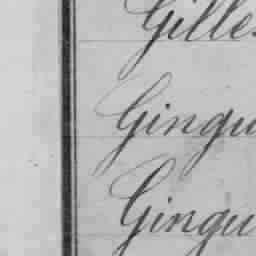 Gilles
Gingu
Gingu